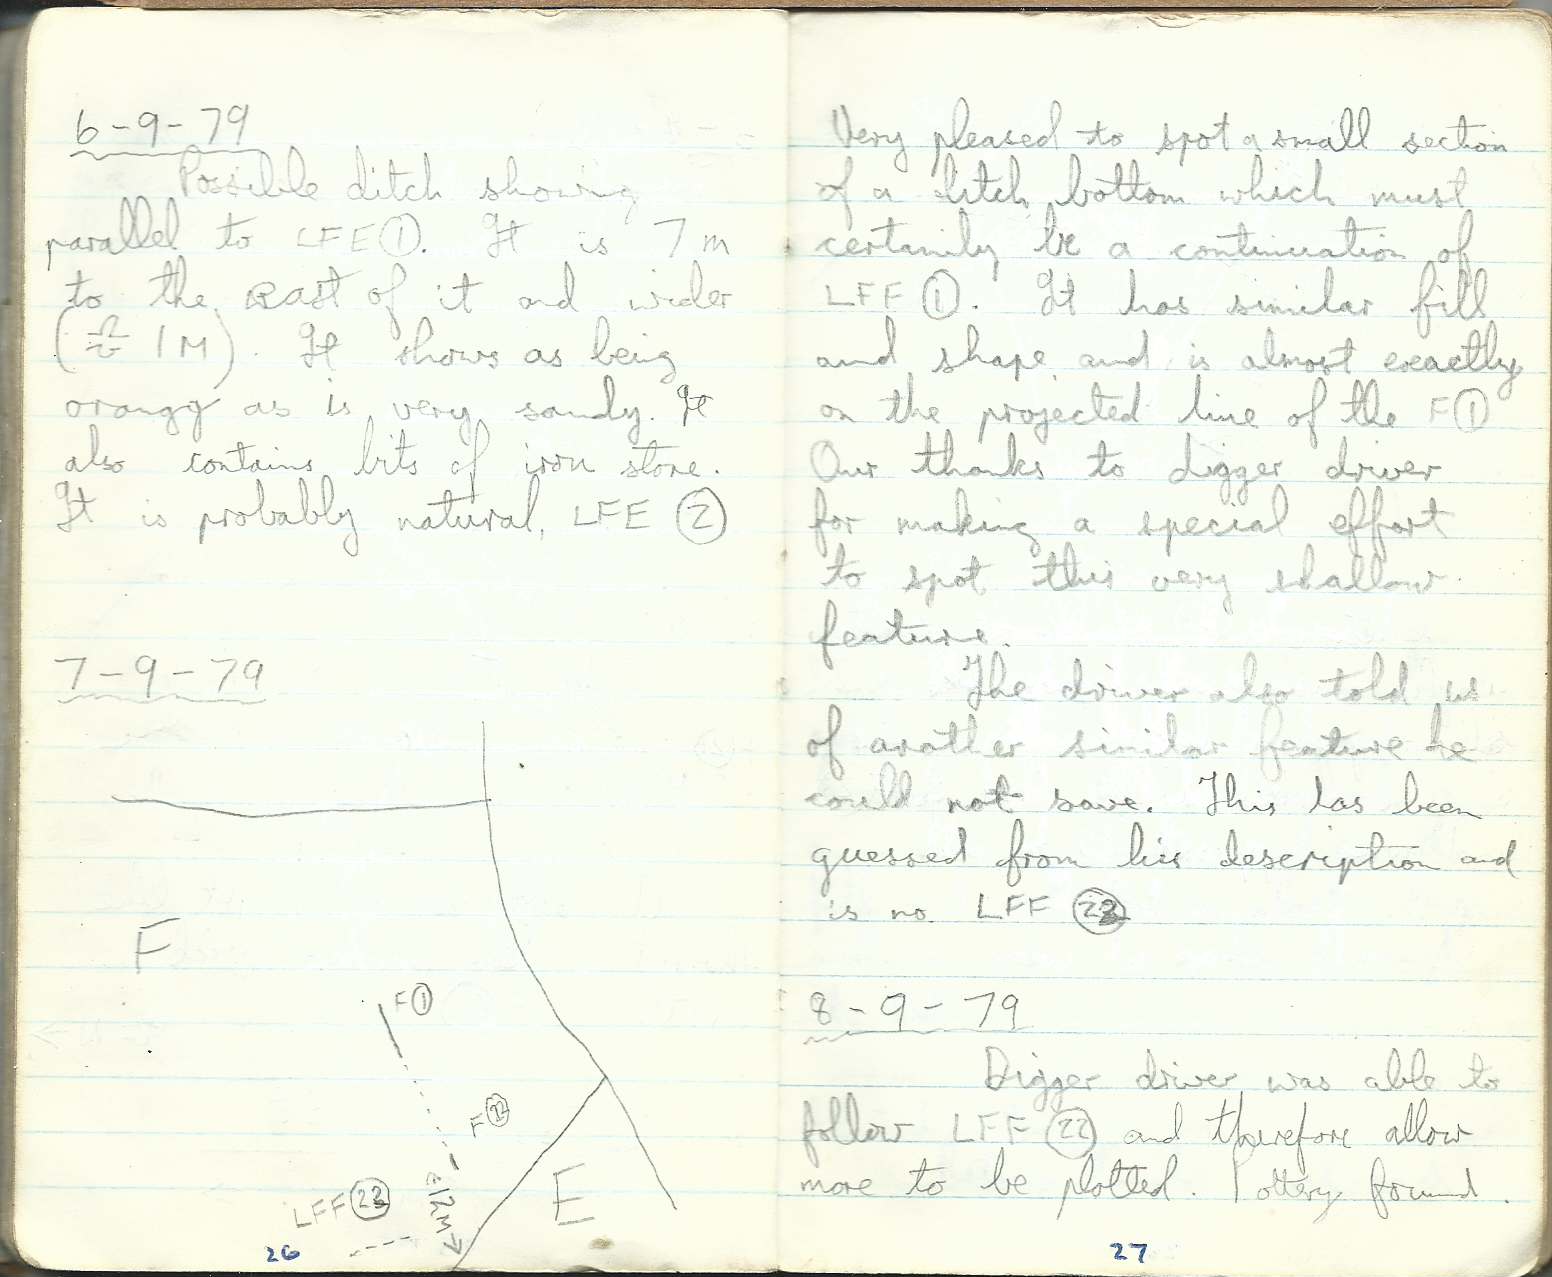 6-9-79
Possible ditch showing
parallel to LFE ①. It is 7m
to the East of it and wider
(≈ 1M). It shows as being
orangy as is very sandy. It
also contains bits of iron stone.
It is probably natural, LFE ②
7-9-79
F
F①
F㉒
LFF㉓
c12M
E
26
Very pleased to spot a small section
of a ditch bottom which must
certainly be a continuation of
LFF ①. It has similar fill
and shape and is almost exactly
on the projected line of the F①
Our thanks to digger driver
for making a special effort
to spot this very shallow
feature.
The driver also told us
of another similar feature he
could not save. This has been
guessed from his description and
is no. LFF ㉓
8-9-79
Digger driver was able to
follow LFF ㉒ and therefore allow
more to be plotted. Pottery found.
27